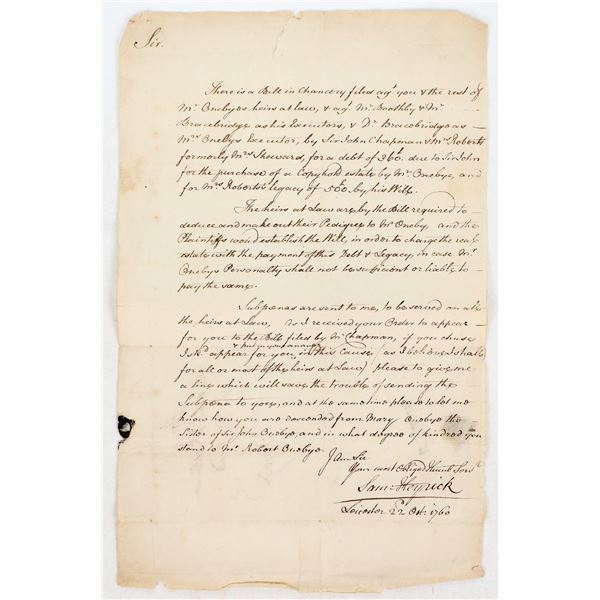 Sir.
There is a Bill in Chancery filed agt. you & the rest of
Mr. Onebyes heirs at law, & agt. Mr. Boothby & Mr.
Bracebridge as his Executors, & Dr. Bracebridge as
Mrs. Onebys Executor, by Sir John Chapman & Mrs. Roberts
formerly Mrs. Steward, for a debt of 360£. due to Sir John
for the purchase of a Copyhold estate by Mr. Onebye, and
for Mrs. Roberts's legacy of 500£. by his Will.
The heirs at Law are by the Bill required to
deduce and make out their Pedigree to Mr. Oneby, and the
Plaintiffs would establish the Will, in order to charge the real
estate with the payment of this Debt & Legacy, in case Mr.
Onebys Personalty shall not be sufficient or liable to
pay the same.
Subpœnas are sent to me, to be served on all
the heirs at Law, as I received your Order to appear
for you to the Bill filed by Mr. Chapman, if you chuse
& put in your answer
I shd. appear for you, in this Cause (as I believe I shall
for all or most of the heirs at Law) please to give me
a line which will save the trouble of sending the
Subpœna to you, and at the same time please to let me
know how you are descended from Mary Onebye the
Sister of Sir John Onebye, and in what degree of kindred you
stand to Mr. Robert Onebye
I am Sir
Your most Obliged humle Servt.
Sam: Heyrick
Leicester 22d Octr. 1760